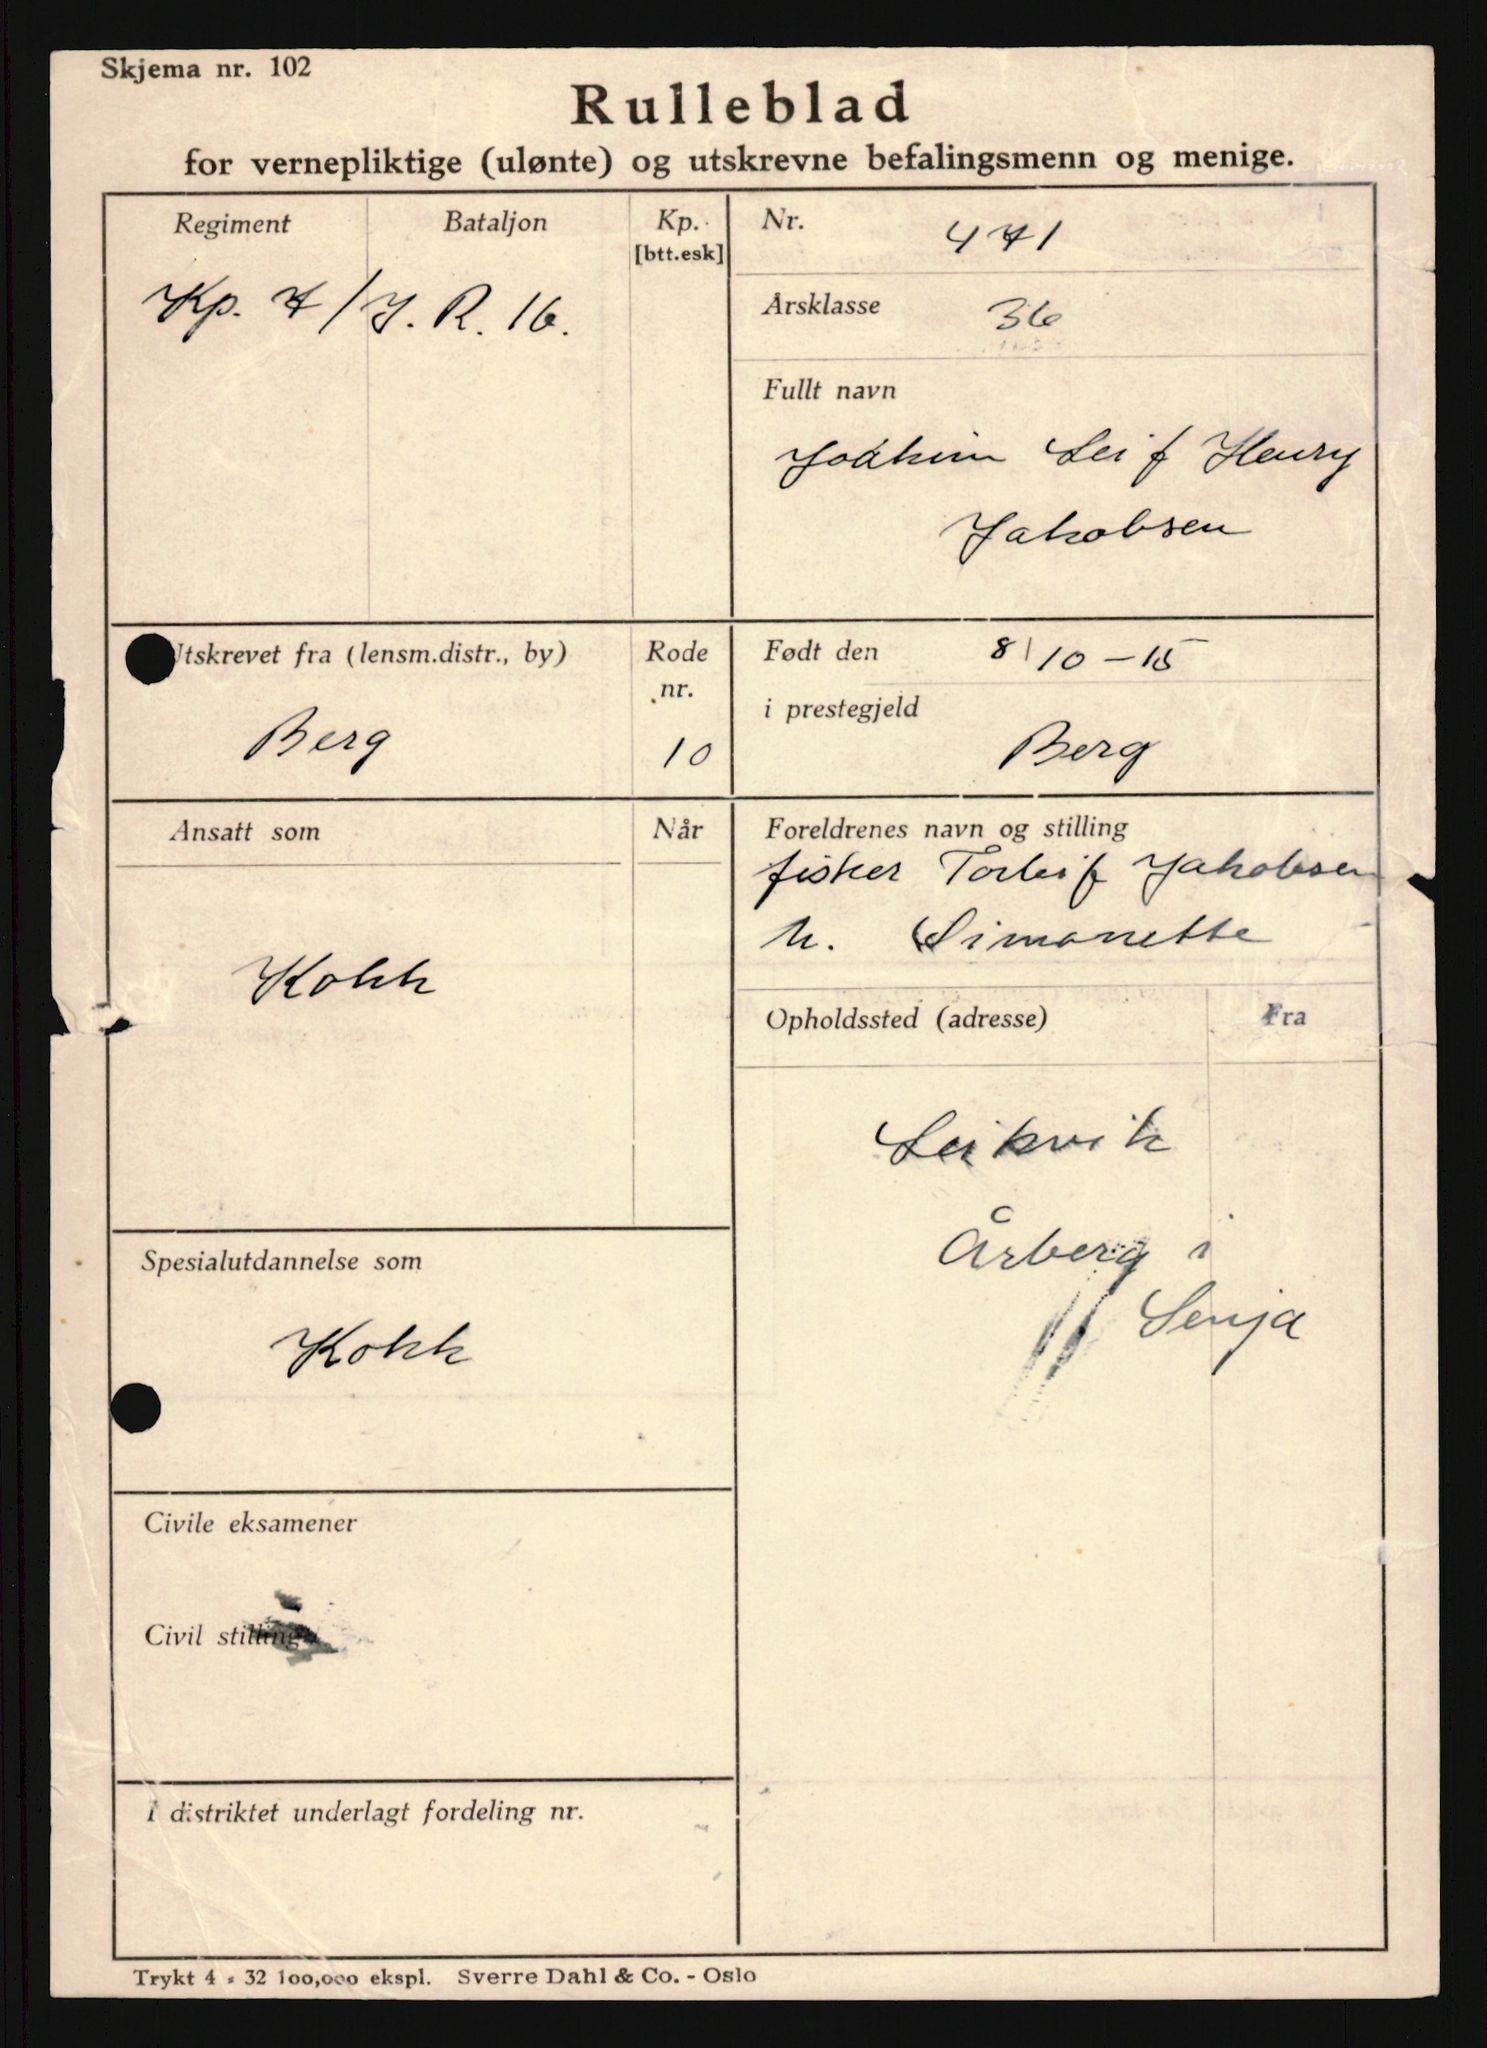 Skjema nr. 102
Rulleblad
for vernepliktige (ulønte) og utskrevne befalingsmenn og menige.
Regiment
Bataljon
Kp.
[btt.esk]
Kp. 7/J. R. 16.
Nr. 471
Årsklasse 36
Fullt navn
Joakim Leif Henry
Jakobsen
Utskrevet fra (lensm.distr., by)
Berg
Rode
nr.
10
Født den 8/10-15
i prestegjeld
Berg
Ansatt som
Når
Kokk
Foreldrenes navn og stilling
fisker Torleif Jakobsen
h. Simonette
Opholdssted (adresse)
Fra
Leikvik
Årberg i
Senja
Spesialutdannelse som
Kokk
Civile eksamener
Civil stilling
I distriktet underlagt fordeling nr.
Trykt 4 - 32 100,000 ekspl. Sverre Dahl & Co. - Oslo